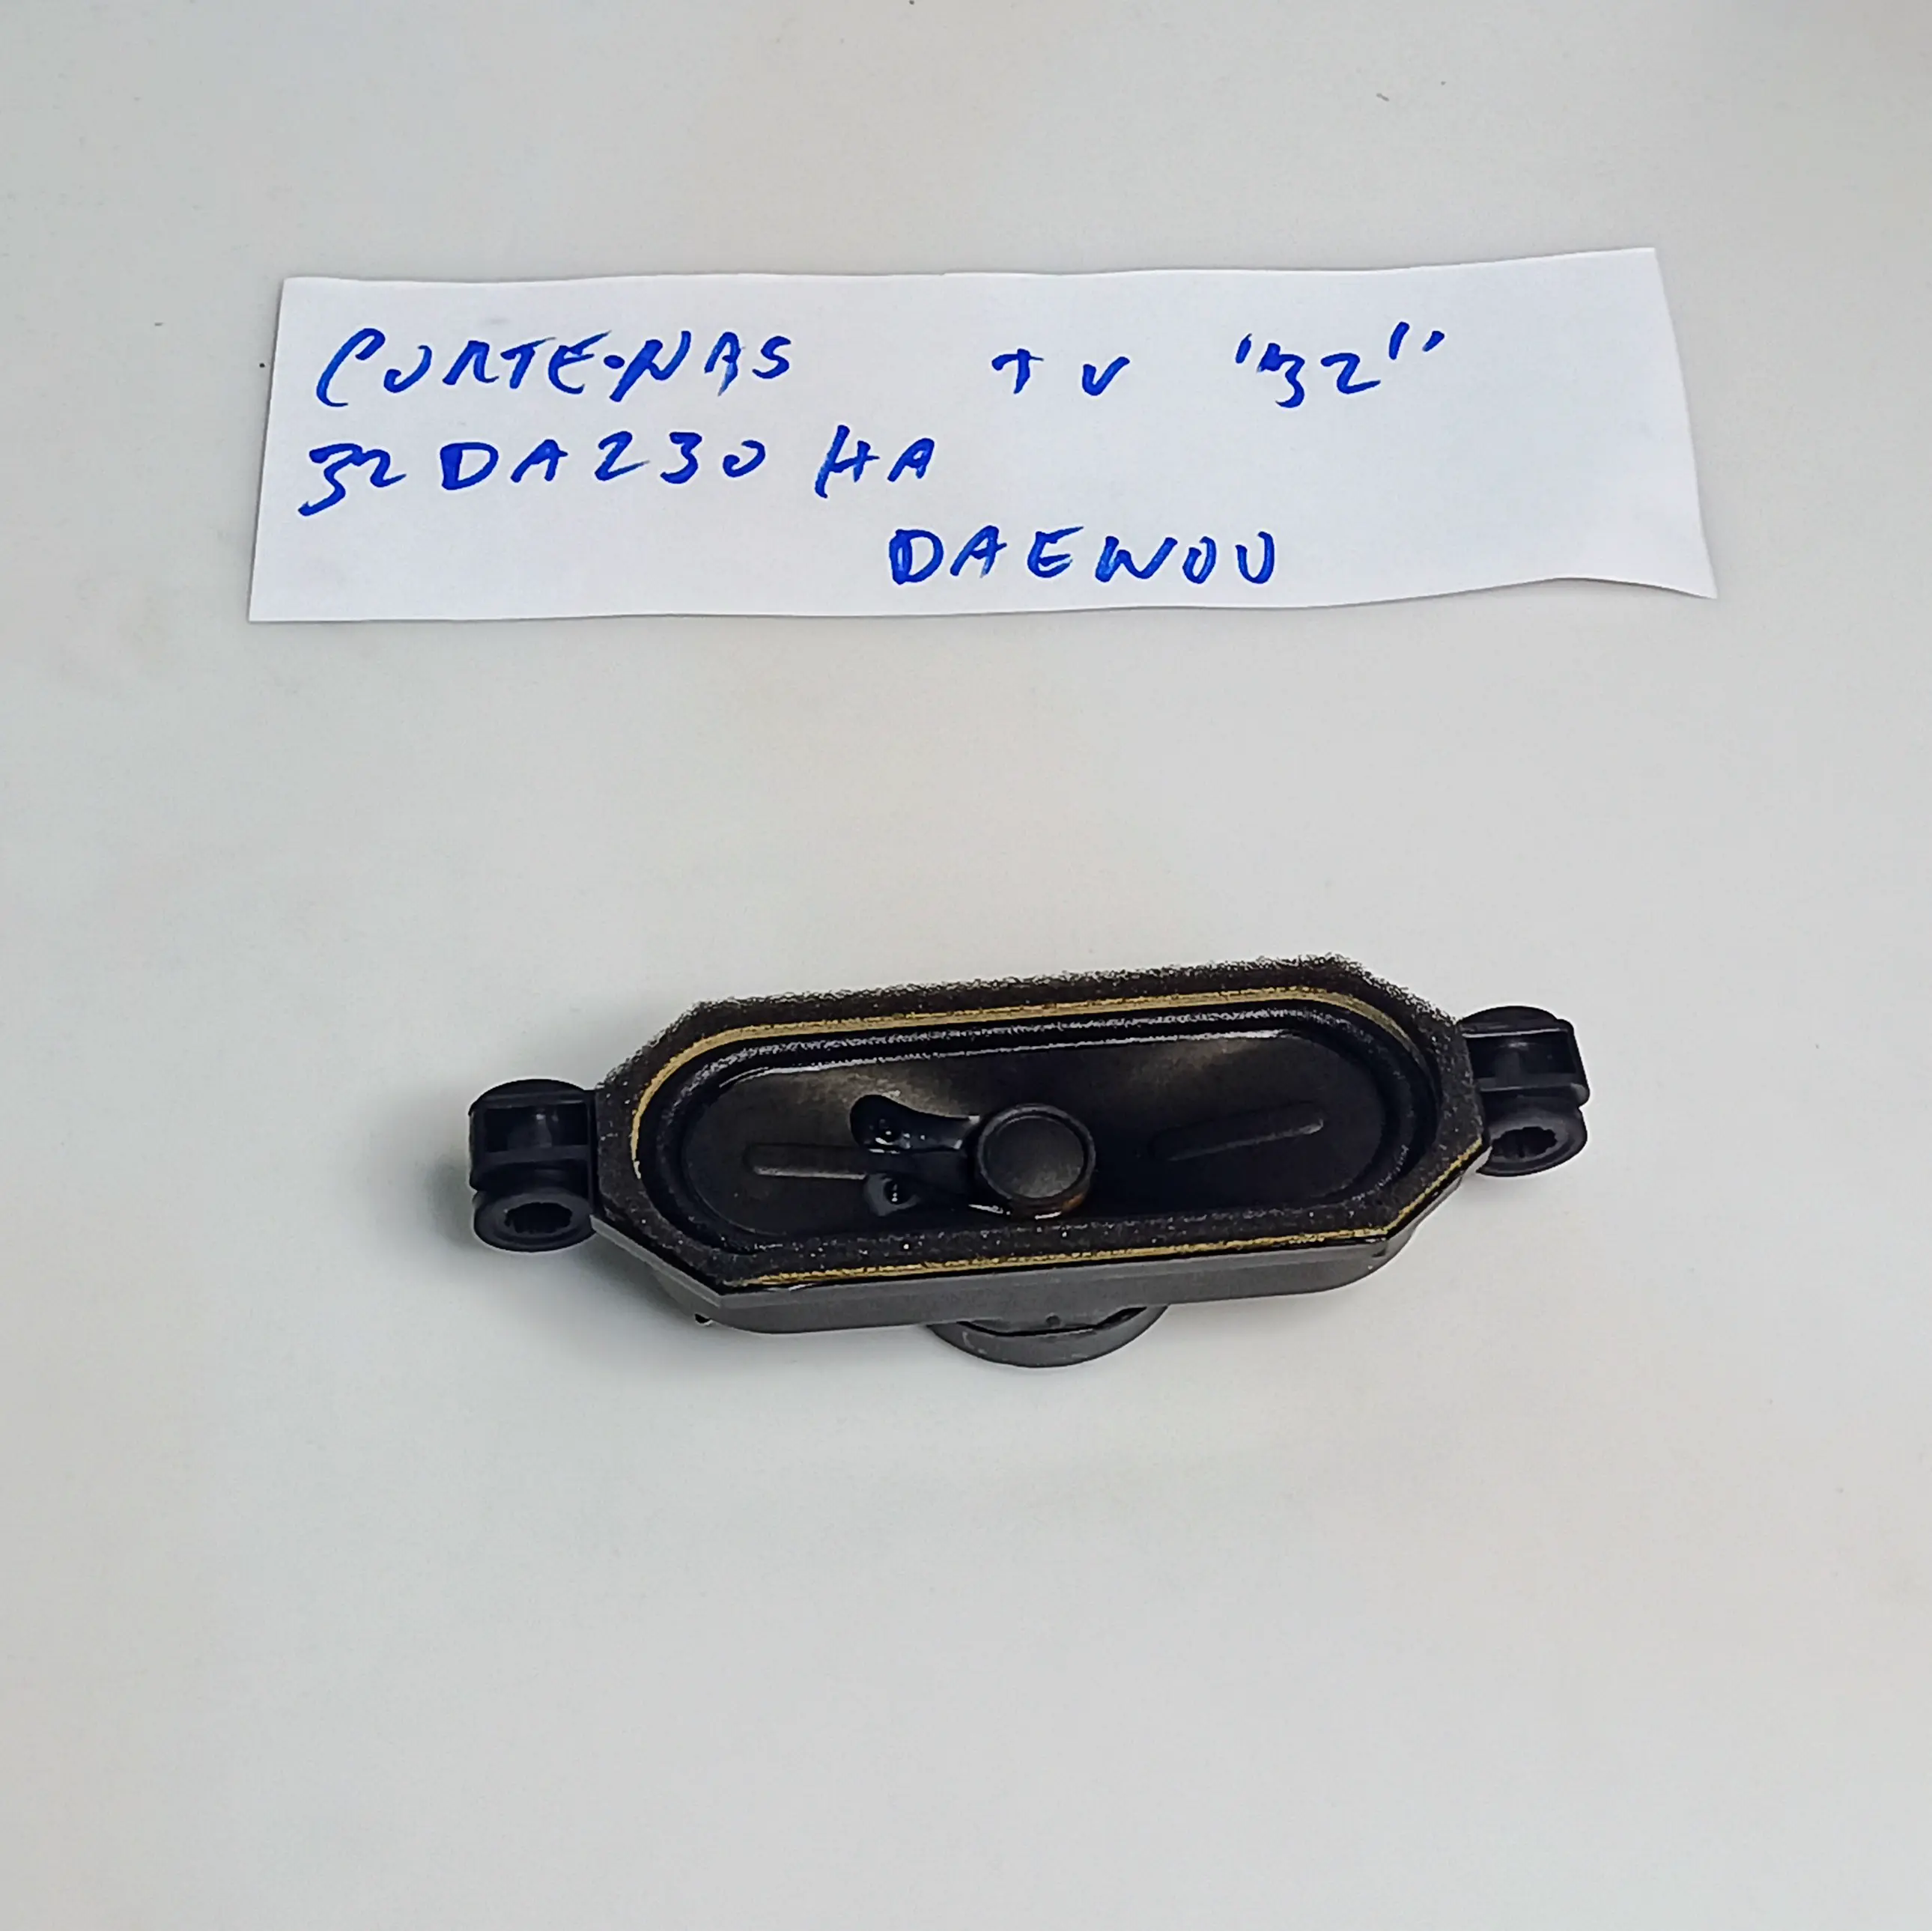 CORTE-NAS TV "32"
32DA230HA
DAEWOO